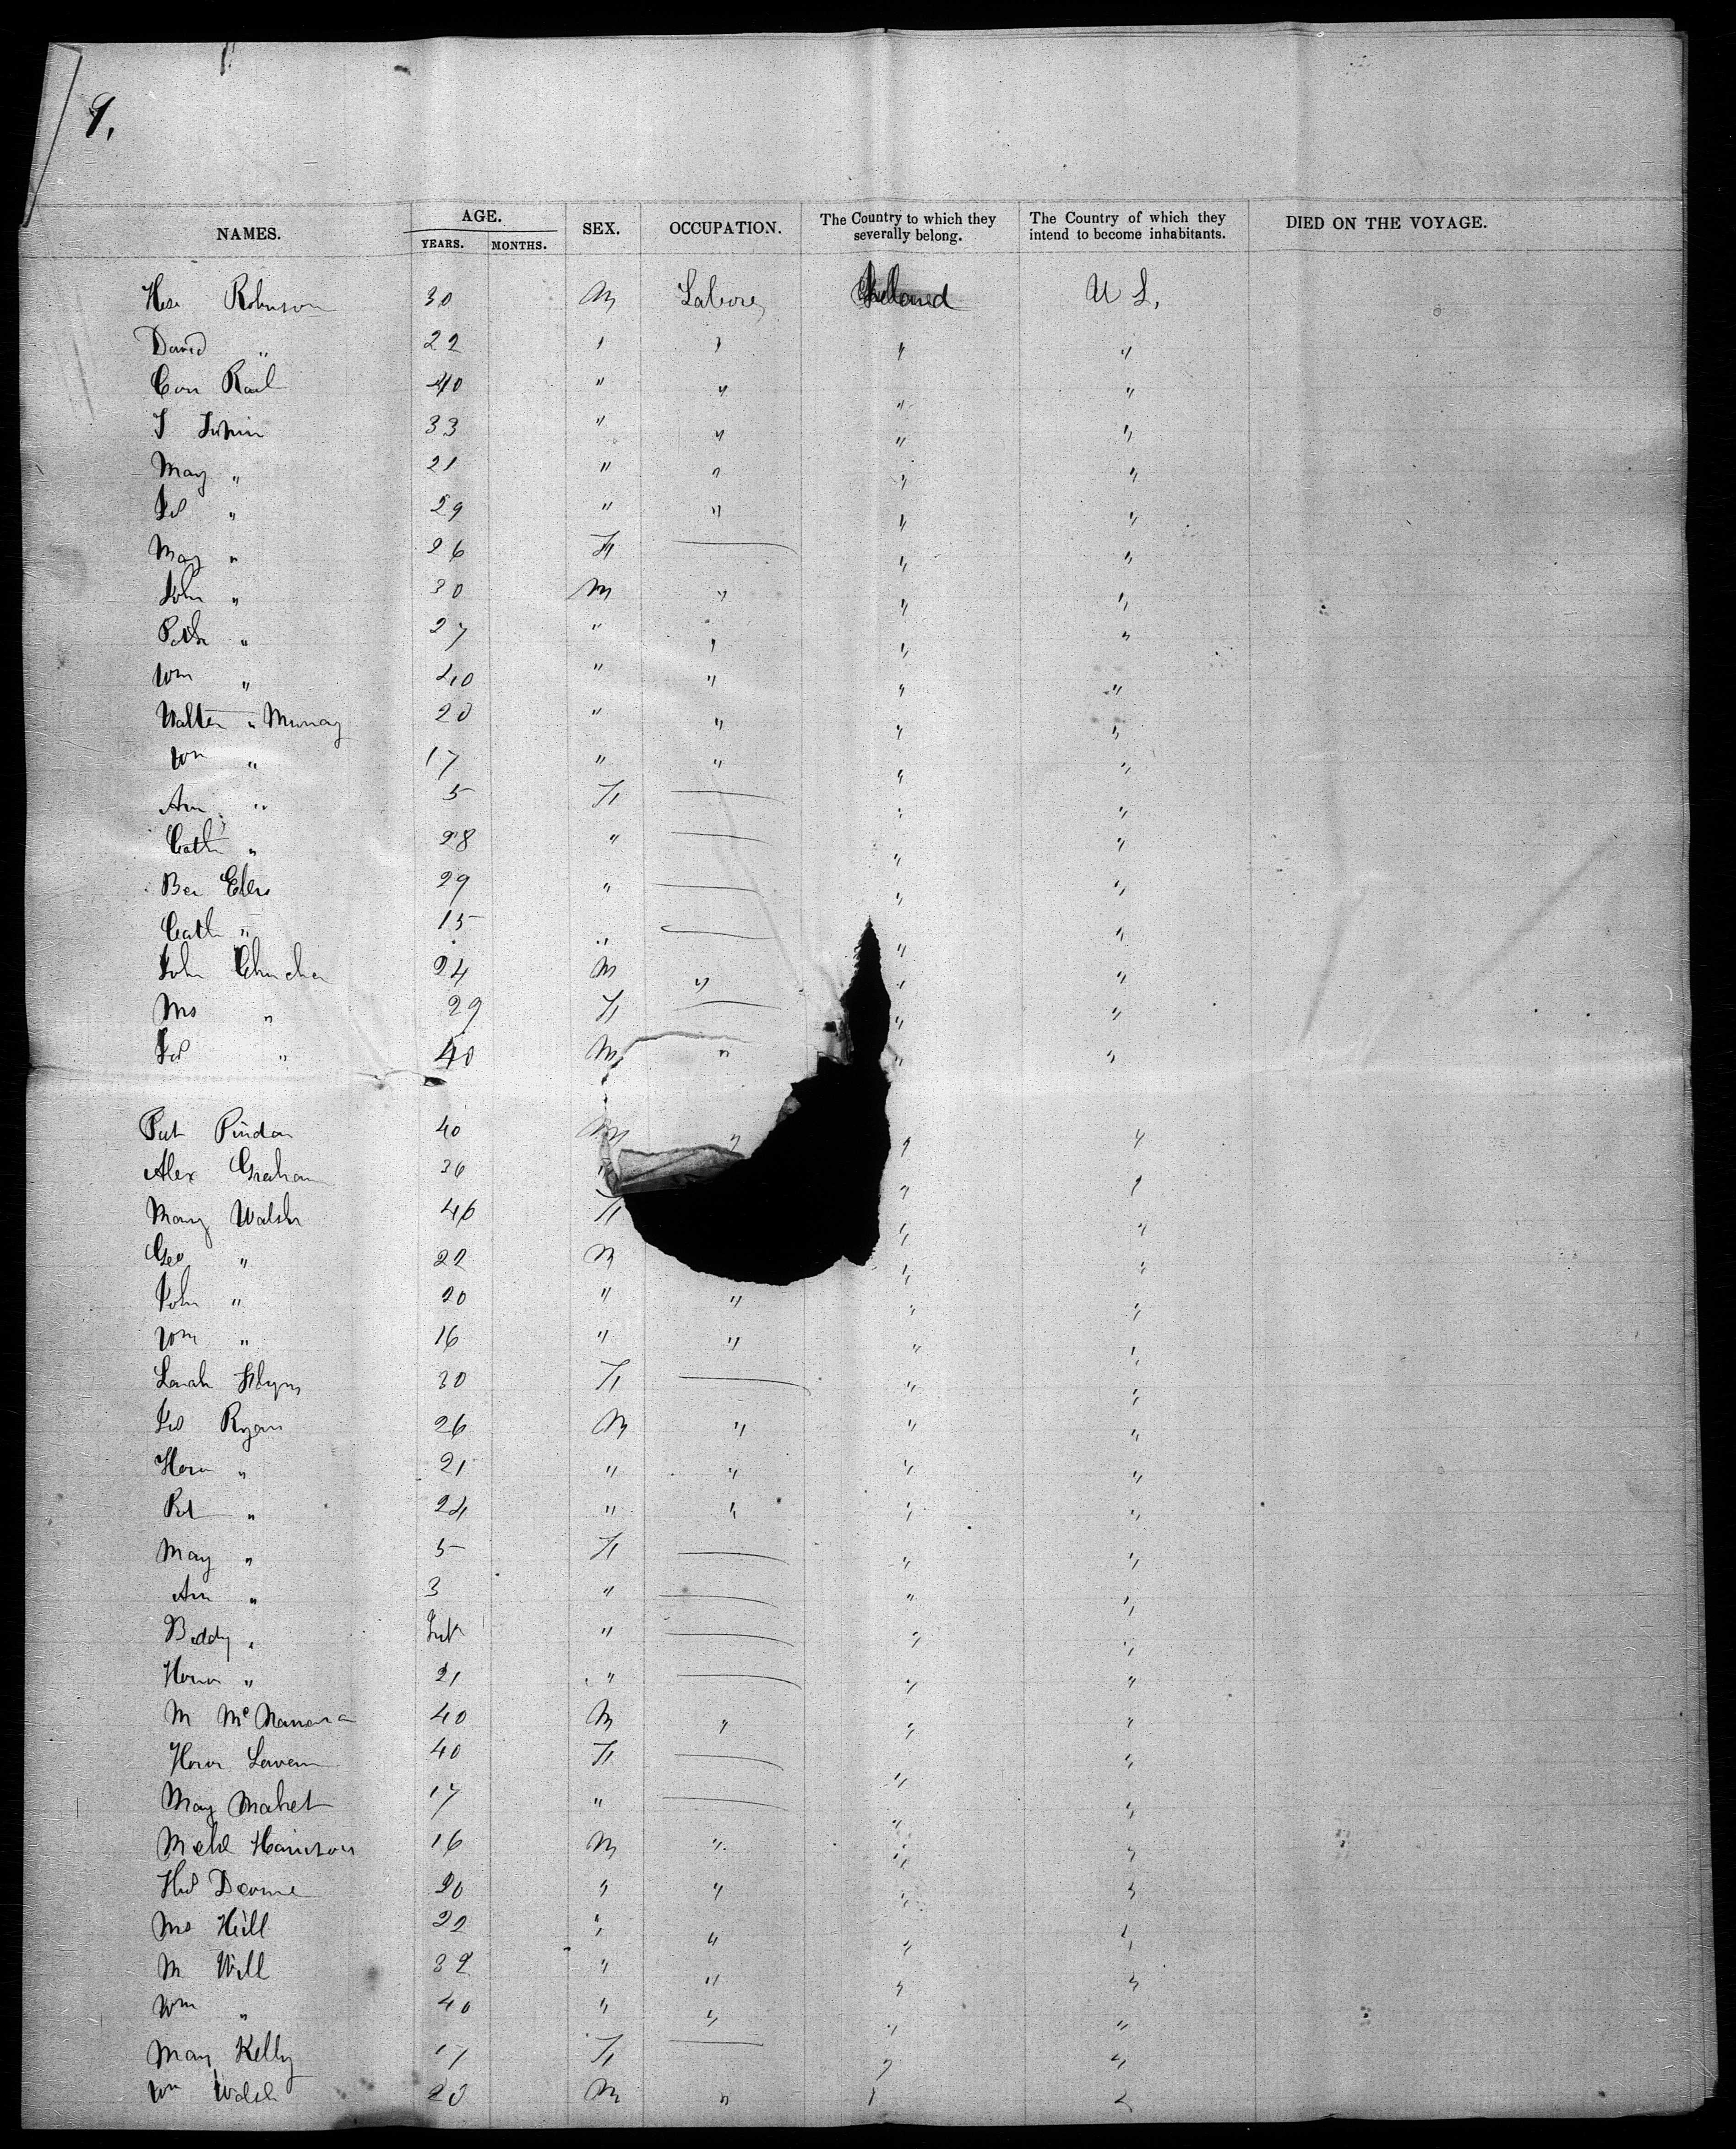 9.
NAMES. AGE. YEARS. MONTHS. SEX. OCCUPATION. The Country to which they severally belong. The Country of which they intend to become inhabitants. DIED ON THE VOYAGE.
Robinson 30 M Labore Ireland U S,
David " 22 " " " "
Con 40 " " " "
J 33 " " " "
May " 21 " " " "
" 29 " " " "
May " 26 F — " "
John " 30 M " " "
" 27 " " " "
Wm " 40 " " " "
Walter " Murray 20 " " " "
Wm " 17 " " " "
Ann " 5 F — " "
Cath " 28 " — " "
29 " — " "
Cath " 15 " — " "
John 24 M " " "
Ms " 29 F — " "
" 40 M " " "
Pat 40 M " " "
Alex Graham 36 " " "
Mary Walsh 46 F " "
Geo " 22 M " "
John " 20 " " " "
Wm " 16 " " " "
Sarah 30 F — " "
Ryan 26 M " " "
" 21 " " " "
Pat " 24 " " " "
May " 5 F — " "
Ann " 3 " — " "
Biddy " Inft " — " "
Honor " 21 " — " "
M McNamara 40 M " " "
Honor 40 F — " "
May 17 " — " "
Harrison 16 M " " "
20 " " " "
Ms Hill 22 " " " "
M Will 32 " " " "
Wm " 40 " " " "
Mary Kelly 17 F — " "
Wm Walsh 20 M " " "